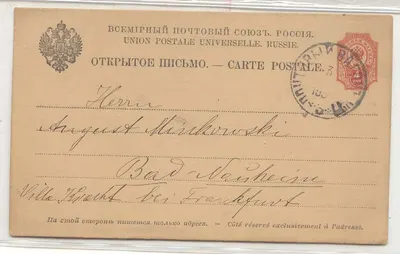 ВСЕМІРНЫЙ ПОЧТОВЫЙ СОЮЗЪ. РОССІЯ.
UNION POSTALE UNIVERSELLE. RUSSIE.
ОТКРЫТОЕ ПИСЬМО. — CARTE POSTALE.
Herrn
August Minkowski
Bad Nauheim
Villa Kracht bei Frankfurt
На этой сторонѣ пишется только адресъ. — Côté réservé exclusivement à l'adresse.